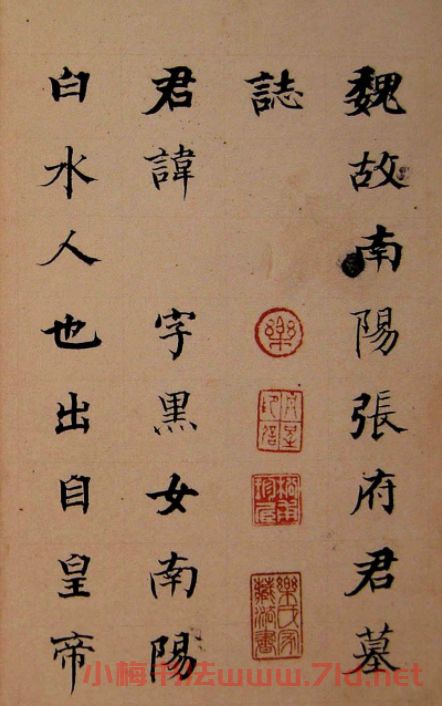 魏故南陽張府君墓
誌
君諱 字黑女南陽
白水人也出自皇帝
小梅书法www.7ld.net